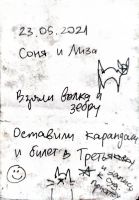 23.05.2021
Соня и Лиза
Взяли волка и
зебру
Оставили карандаш
и билет в Третьяковку